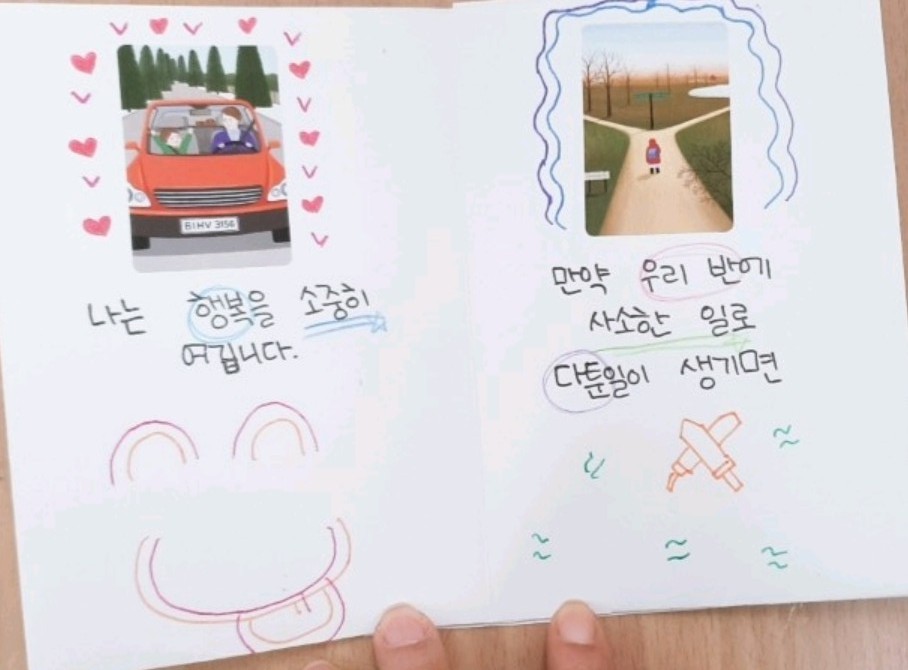 나는 행복을 소중히
여깁니다.
만약 우리 반에
사소한 일로
다툰일이 생기면